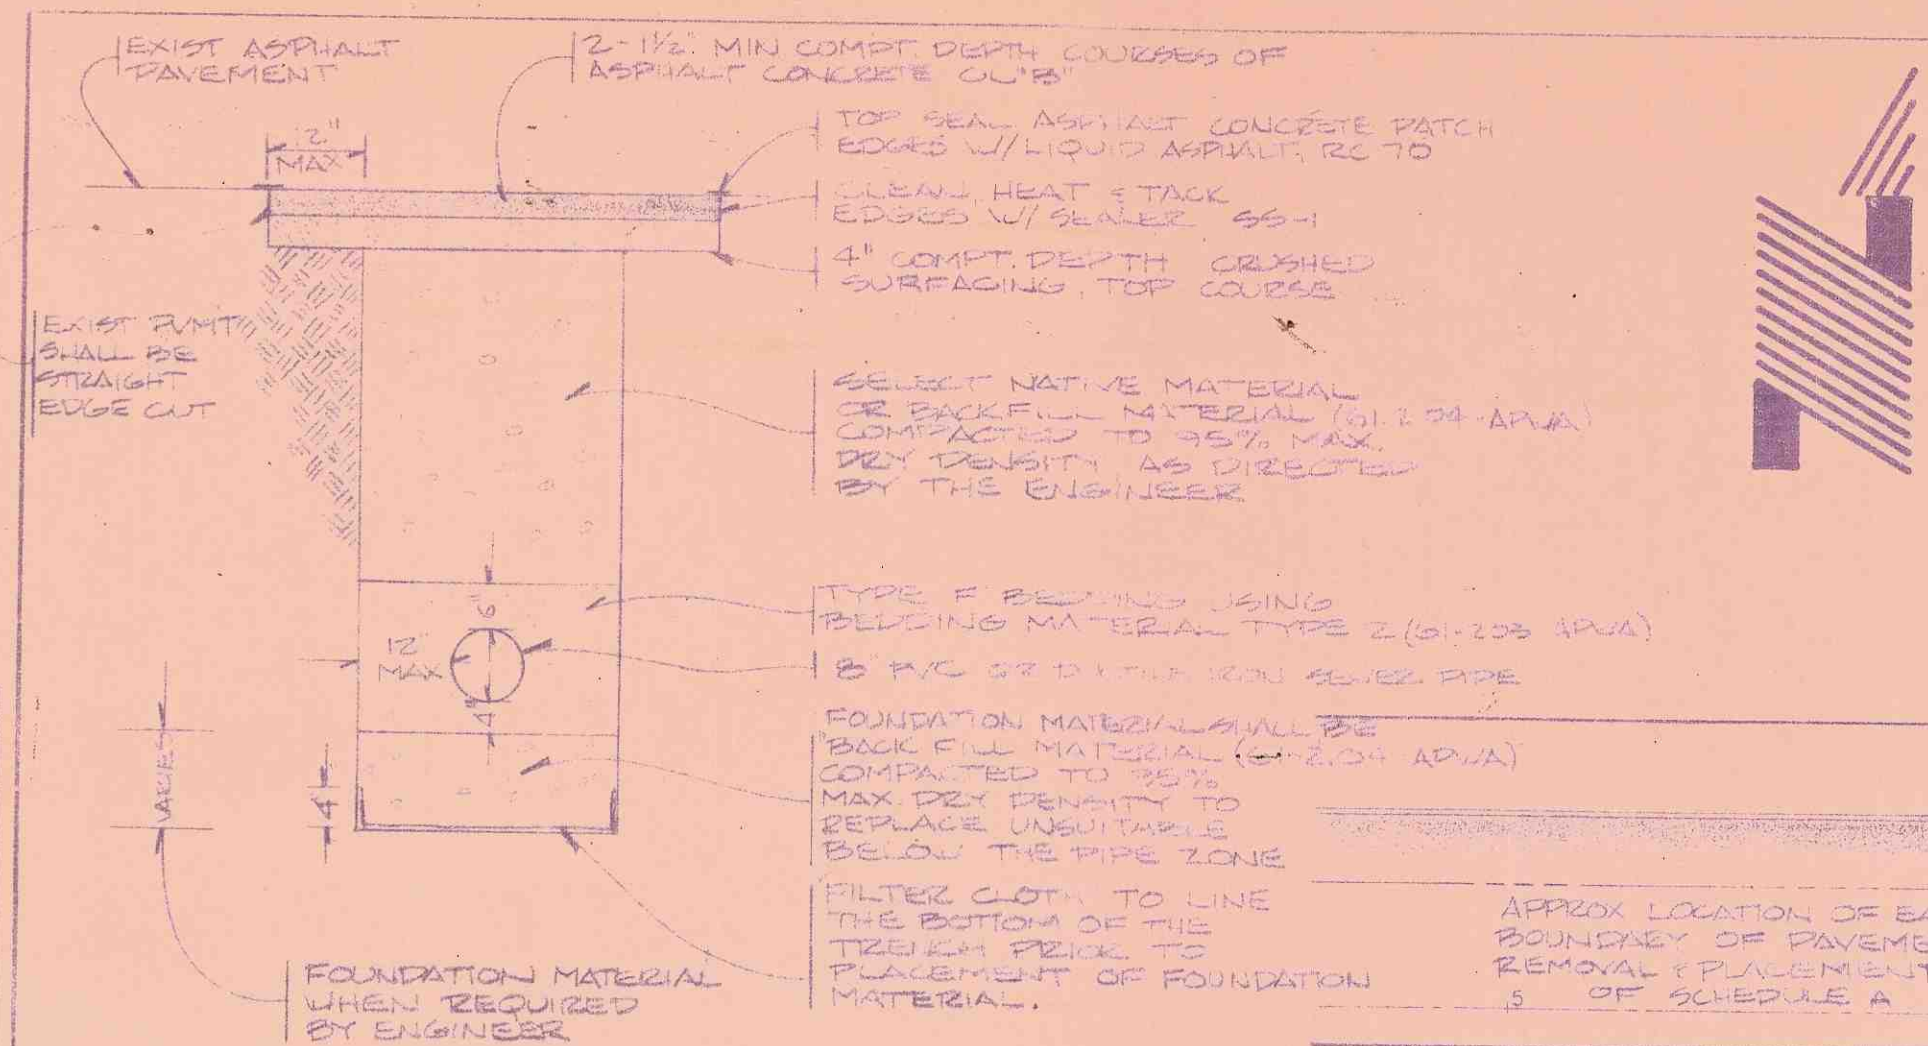 EXIST ASPHALT
PAVEMENT
2-1½" MIN COMPT. DEPTH COURSES OF
ASPHALT CONCRETE CL "B"
TOP SEAL ASPHALT CONCRETE PATCH
EDGES W/ LIQUID ASPHALT, RC 70
2"
MAX
CLEAN, HEAT & TACK
EDGES W/ SEALER SS-1
4" COMPT. DEPTH CRUSHED
SURFACING, TOP COURSE
EXIST PVMT
SHALL BE
STRAIGHT
EDGE CUT
SELECT NATIVE MATERIAL
OR BACKFILL MATERIAL (61-2.04 APWA)
COMPACTED TO 95% MAX.
DRY DENSITY AS DIRECTED
BY THE ENGINEER
TYPE F BEDDING USING
BEDDING MATERIAL TYPE 2 (61-2.03 APWA)
6"
12
MAX
4"
8" PVC OR DUCTILE IRON SEWER PIPE
FOUNDATION MATERIAL SHALL BE
BACK FILL MATERIAL (61-2.04 APWA)
COMPACTED TO 95%
MAX. DRY DENSITY TO
REPLACE UNSUITABLE
BELOW THE PIPE ZONE
VARIES
4"
FILTER CLOTH TO LINE
THE BOTTOM OF THE
TRENCH PRIOR TO
PLACEMENT OF FOUNDATION
MATERIAL.
FOUNDATION MATERIAL
WHEN REQUIRED
BY ENGINEER
APPROX LOCATION OF EA
BOUNDARY OF PAVEME
REMOVAL & PLACEMENT
OF SCHEDULE A